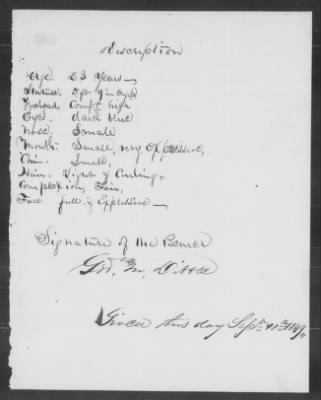 Description
Age. 23 Years
Stature. 5 ft 9 in
Forehead, high
Eyes. dark blue
Nose. Small
Mouth. Small, very expressive,
Chin. Small,
Hair. & Curling
Complexion, Fair,
Face full & Expressive
Signature of the Bearer
Geo. M.
Given this day Sept. 1849